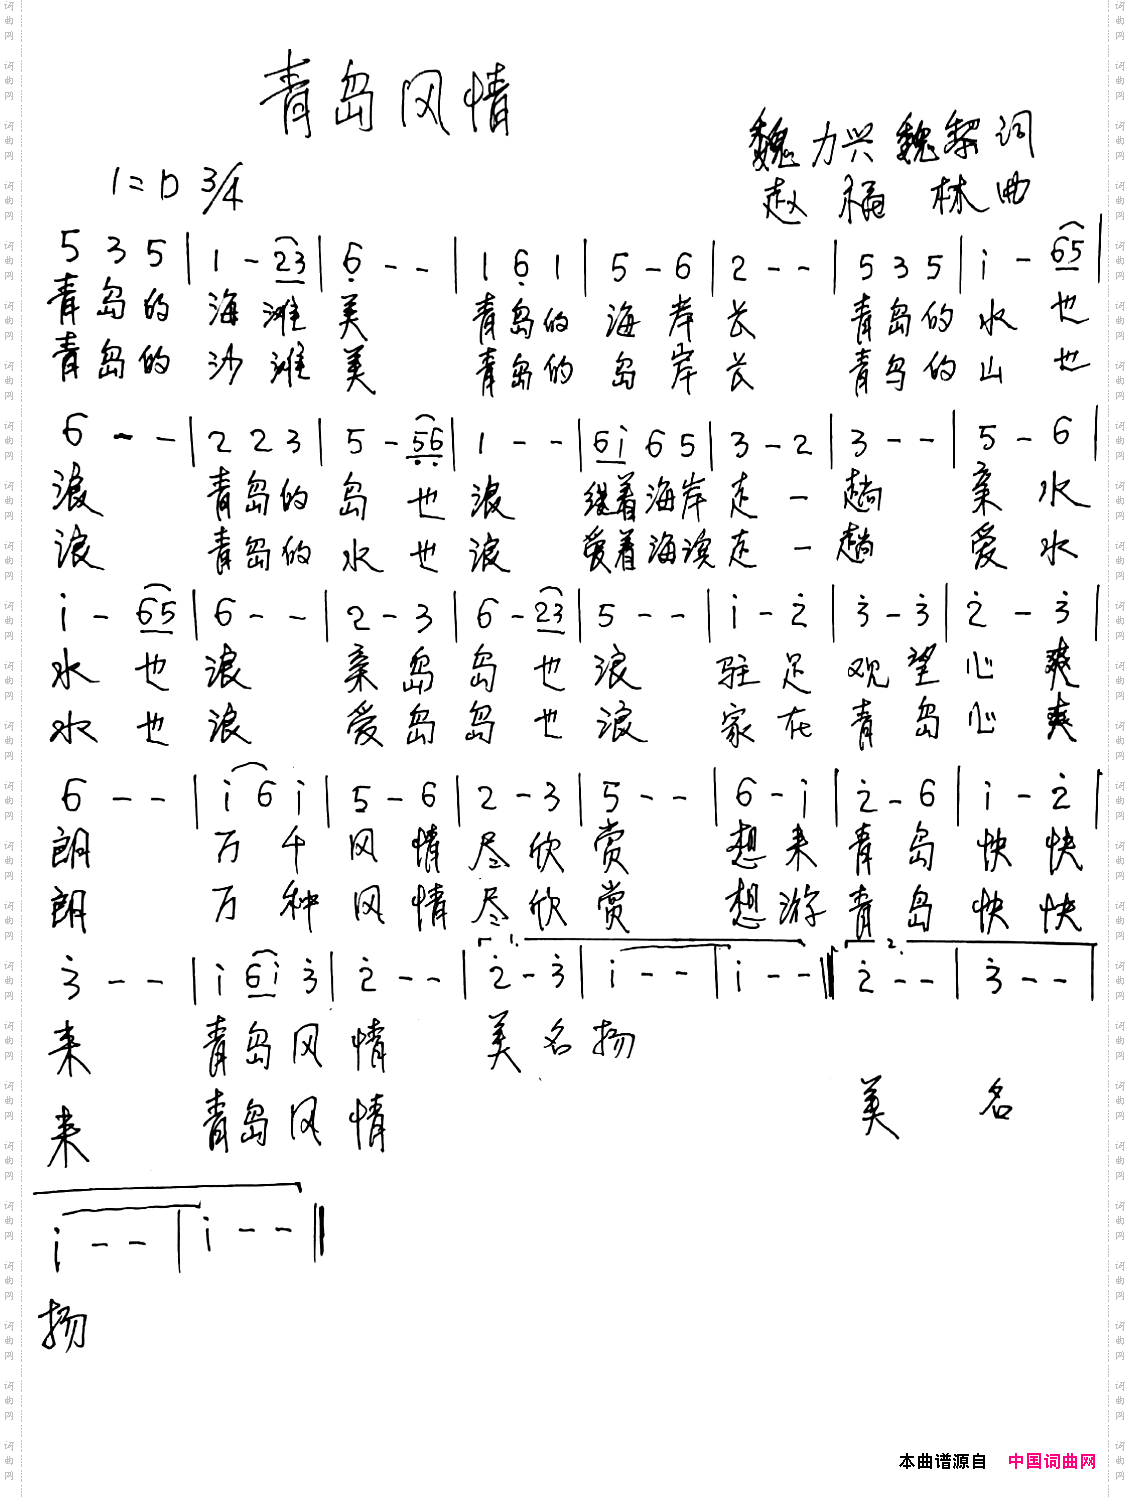 青岛风情
魏力兴 魏黎 词
1=D 3/4
赵福林 曲
5 3 5 | 1 - 23 | 6̣ - - | 1 6̣ 1 | 5 - 6 | 2 - - | 5 3 5 | i - 65 |
青岛的 海 滩 美 青岛的 海 岸 长 青岛的 水 也
青岛的 沙 滩 美 青岛的 岛 岸 长 青岛的 山 也
6 - - | 2 2 3 | 5 - 5̣6̣ | 1 - - | 6i 6 5 | 3 - 2 | 3 - - | 5 - 6 |
浪 青岛的 岛 也 浪 绕着海岸 走 一 趟 亲 水
浪 青岛的 水 也 浪 爱着海滨 走 一 趟 爱 水
i - 65 | 6 - - | 2 - 3 | 6 - 23 | 5 - - | i - 2̇ | 3̇ - 3̇ | 2̇ - 3̇ |
水 也 浪 亲 岛 岛 也 浪 驻 足 观 望 心 爽
水 也 浪 爱 岛 岛 也 浪 家 在 青 岛 心 爽
6 - - | i 6 i | 5 - 6 | 2 - 3 | 5 - - | 6 - i | 2̇ - 6 | i - 2̇ |
朗 万 千 风 情 尽 欣 赏 想 来 青 岛 快 快
朗 万 种 风 情 尽 欣 赏 想 游 青 岛 快 快
1. 2.
3̇ - - | i 6i 3̇ | 2̇ - - | 2̇ - 3̇ | i - - | i - - || 2̇ - - | 3̇ - - |
来 青岛风 情 美 名 扬
来 青岛风 情 美 名
i - - | i - - ||
扬
本曲谱源自 中国词曲网